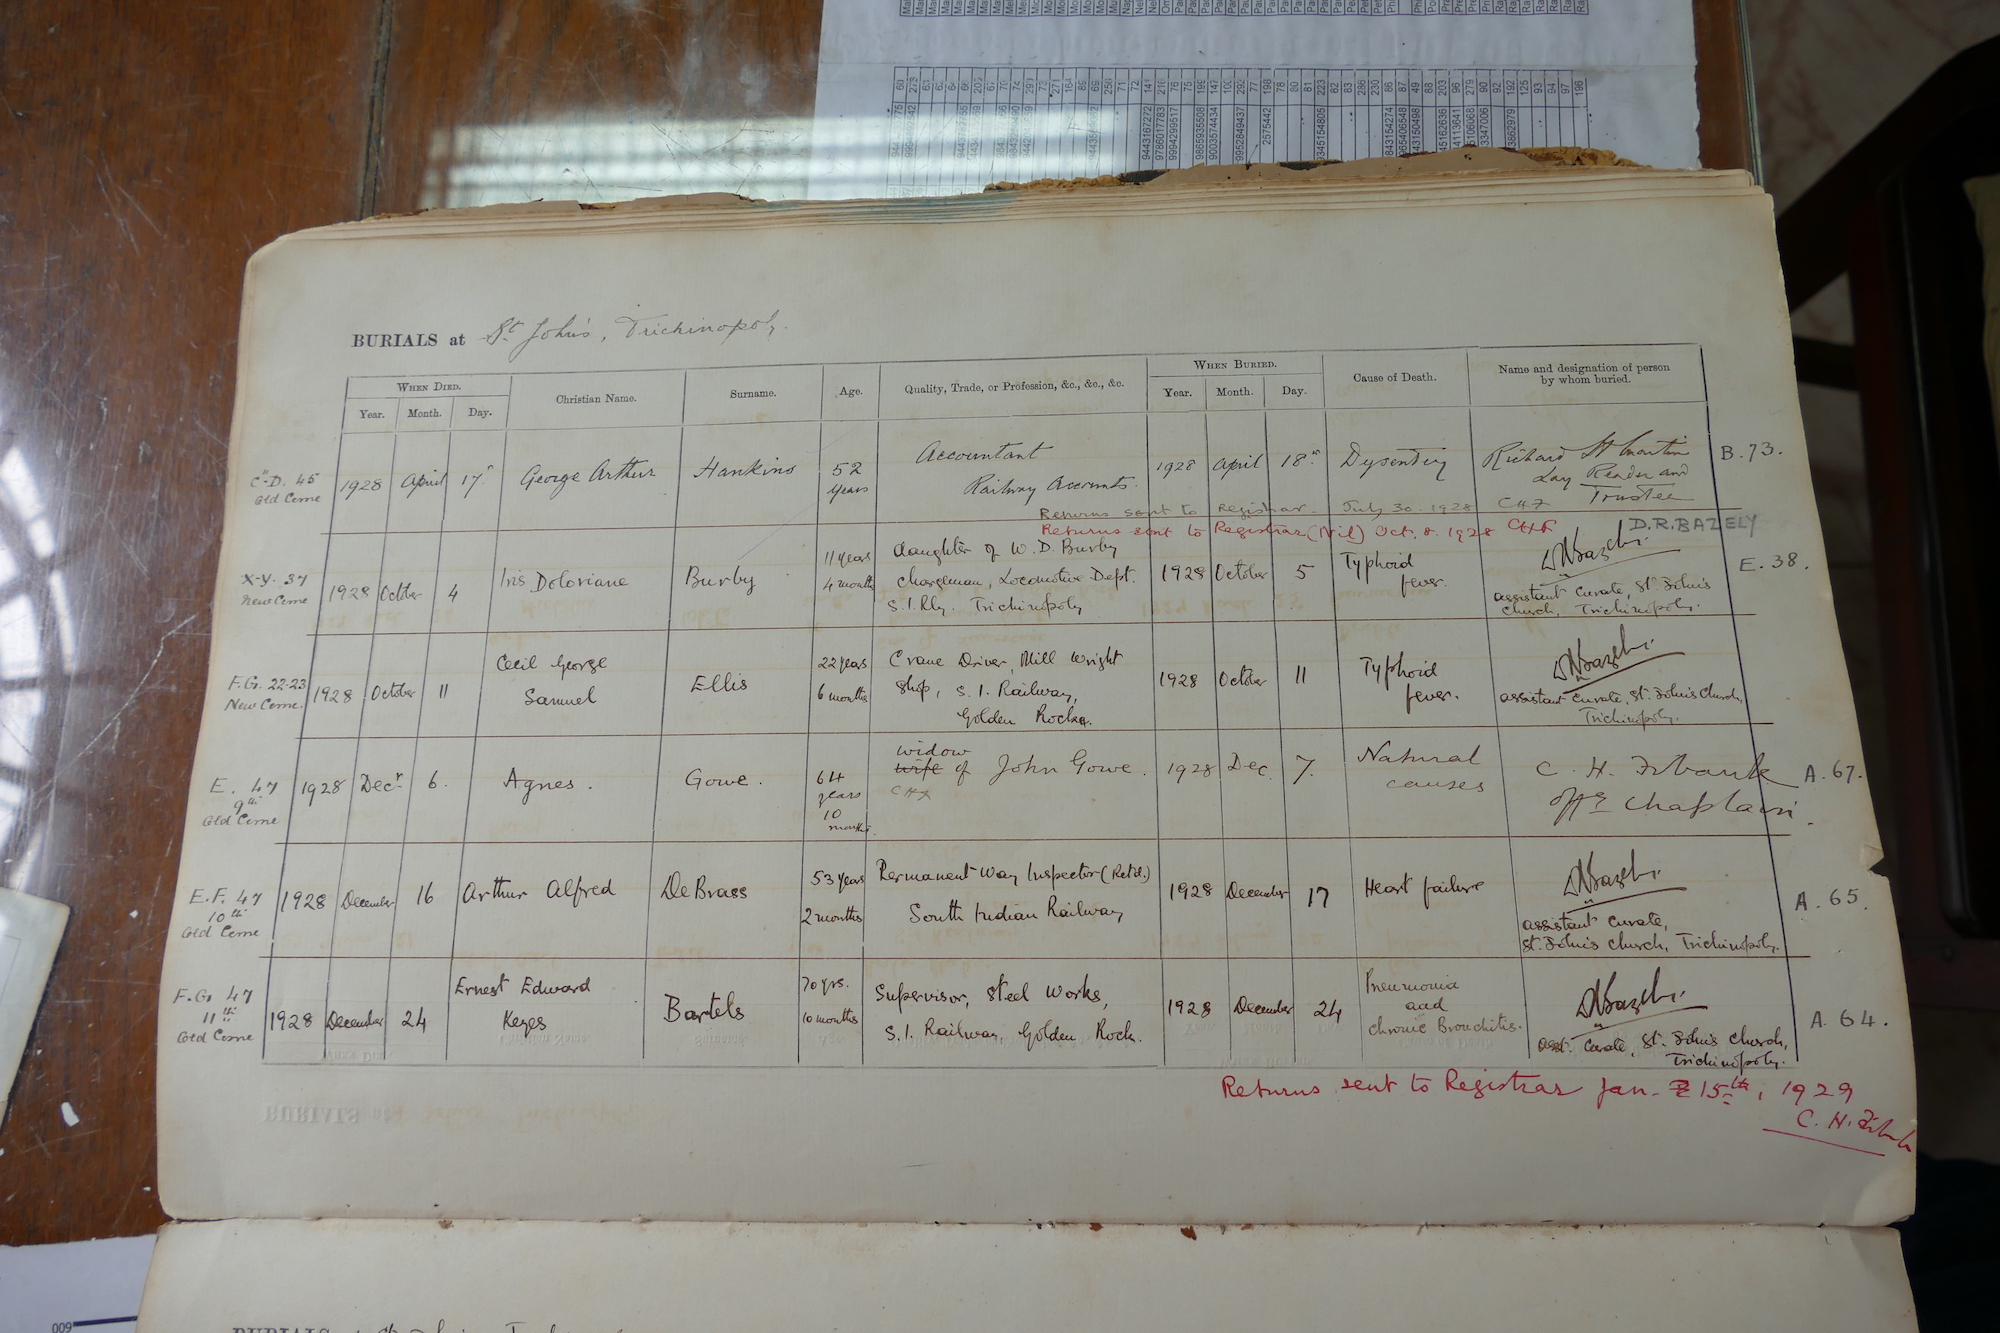 BURIALS at St John's, Trichinopoly.
WHEN DIED. Christian Name. Surname. Age. Quality, Trade, or Profession, &c., &c., &c. WHEN BURIED. Cause of Death. Name and designation of person by whom buried.
Year. Month. Day. Year. Month. Day.
C-D. 45
Old Ceme
1928 April 17 George Arthur Hankins 52 years
Accountant
Railway Accounts.
1928 April 18 Dysentery
Richard St Martin
Lay Reader and
Trustee
B. 73.
Returns sent to Registrar. July 30. 1928 CHF
Returns sent to Registrar (Nil) Oct. 8. 1928 CHF
D.R. BAZELY
X-Y. 37
New Ceme
1928 October 4 Iris Doloriane Burby
11 years
4 months
daughter of W. D. Burby
Chargeman, Locomotive Dept.
S.I.Rly. Trichinopoly
1928 October 5
Typhoid
fever.
DRBazely.
assistant curate, St. John's
Church, Trichinopoly.
E. 38.
F.G. 22-23
New Ceme.
1928 October 11
Cecil George
Samuel
Ellis
22 years
6 months
Crane Driver, Mill Wright
Shop, S. I. Railway,
Golden Rock.
1928 October 11
Typhoid
fever.
DRBazely.
assistant curate, St. John's Church,
Trichinopoly.
E. 47
9th
Old Ceme
1928 Decr 6. Agnes. Gowe.
64
years
10
months.
widow
wife of John Gowe.
CHF
1928 Dec. 7.
Natural
causes
C. H.
Offg Chaplain.
A. 67.
E.F. 47
10th
Old Ceme
1928 December 16 Arthur Alfred DeBrass
53 years
2 months
Permanent Way Inspector (Retd.)
South Indian Railway
1928 December 17 Heart failure
DRBazely.
assistant curate,
St. John's Church, Trichinopoly.
A. 65.
F.G. 47
11th
Old Ceme
1928 December 24
Ernest Edward
Keyes
Bartels
70 yrs.
10 months
Supervisor, Steel Works,
S. I. Railway, Golden Rock.
1928 December 24
Pneumonia
and
chronic Bronchitis.
DRBazely.
asst. curate, St. John's Church,
Trichinopoly.
A. 64.
Returns sent to Registrar Jan. 15th, 1929
C. H.